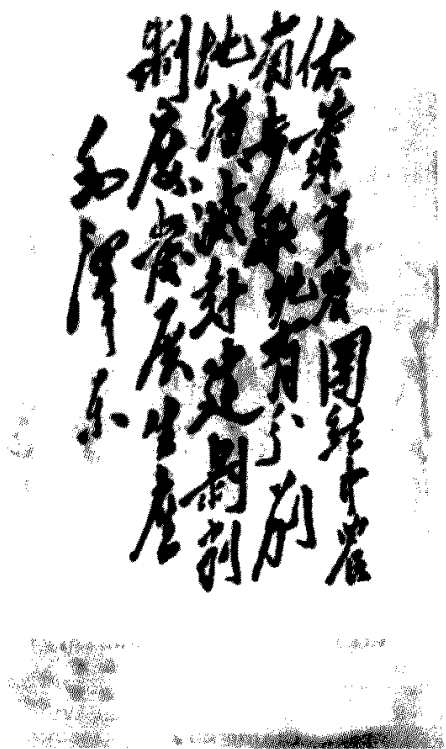 依靠貧農團結中農
有步驟地有分别
地消滅封建剥削
制度發展生產
毛澤东